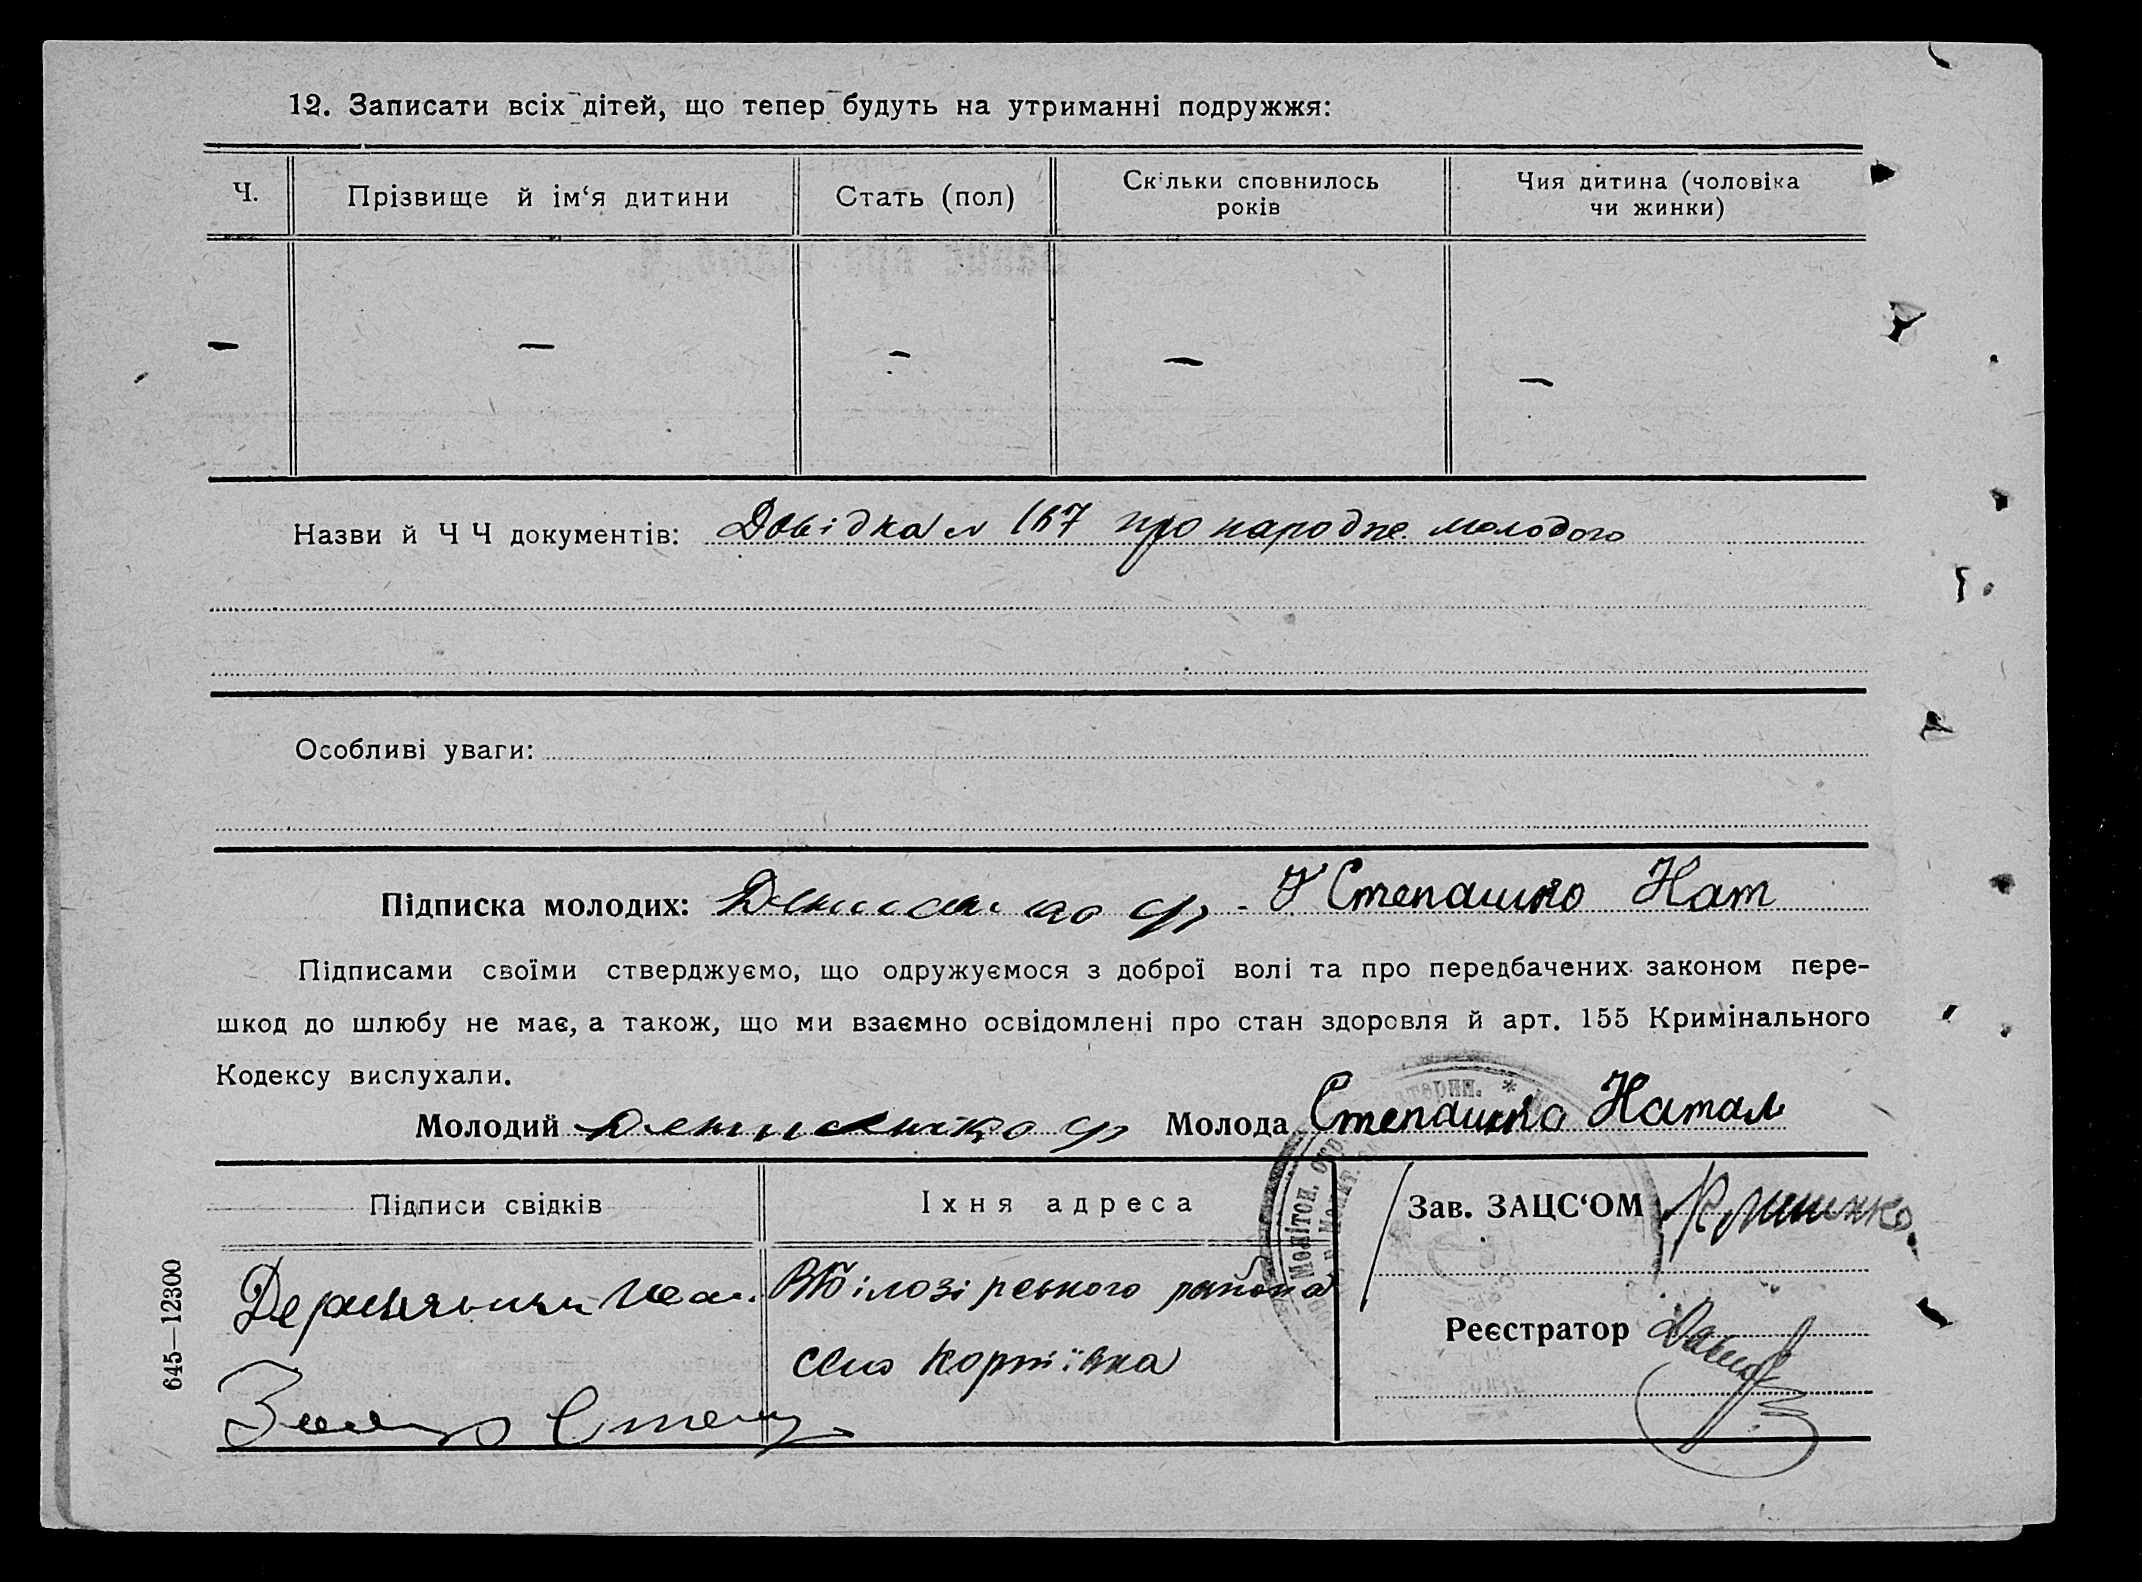 12. Записати всіх дітей, що тепер будуть на утриманні подружжя:
Ч.
Прізвище й ім‘я дитини
Стать (пол)
Скільки сповнилось
років
Чия дитина (чоловіка
чи жинки)
— — — — —
Назви й Ч Ч документів: Довідка № 167 про народже. молодого
Особливі уваги:
Підписка молодих: Степашко Нат
Підписами своїми стверджуємо, що одружуємося з доброї волі та про передбачених законом пере-
шкод до шлюбу не має, а також, що ми взаємно освідомлені про стан здоровля й арт. 155 Кримінального
Кодексу вислухали.
Молодий Молода Степашко Натал
Підписи свідків
Їхня адреса
Білозірського района
село
Зав. ЗАЦС‘ОМ
Реєстратор
645—12300